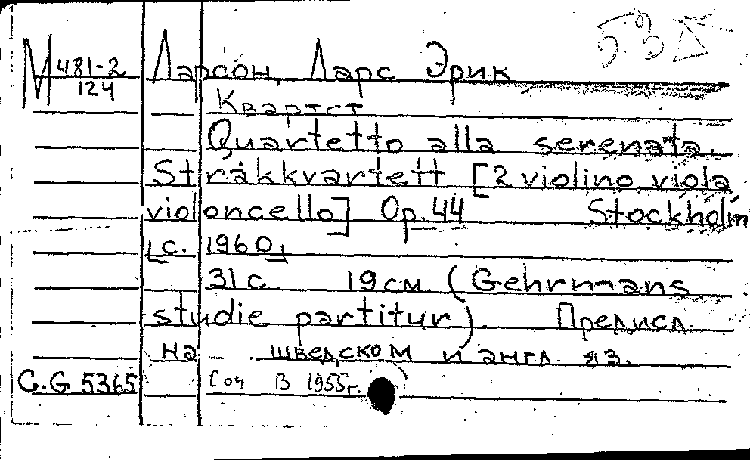 53Δ
М 481-2 Ларсон, Ларс Эрик
124
Квартет
Quartetto alla serenata.
Stråkkvartett [2 violino, viola
violoncello] Op. 44 Stockholm
[c. 1960]
31 с. 19 см. (Gehrmans
studie partitur). Предисл.
на шведском и англ. яз.
C.G 5365 Соч В 1955 г.